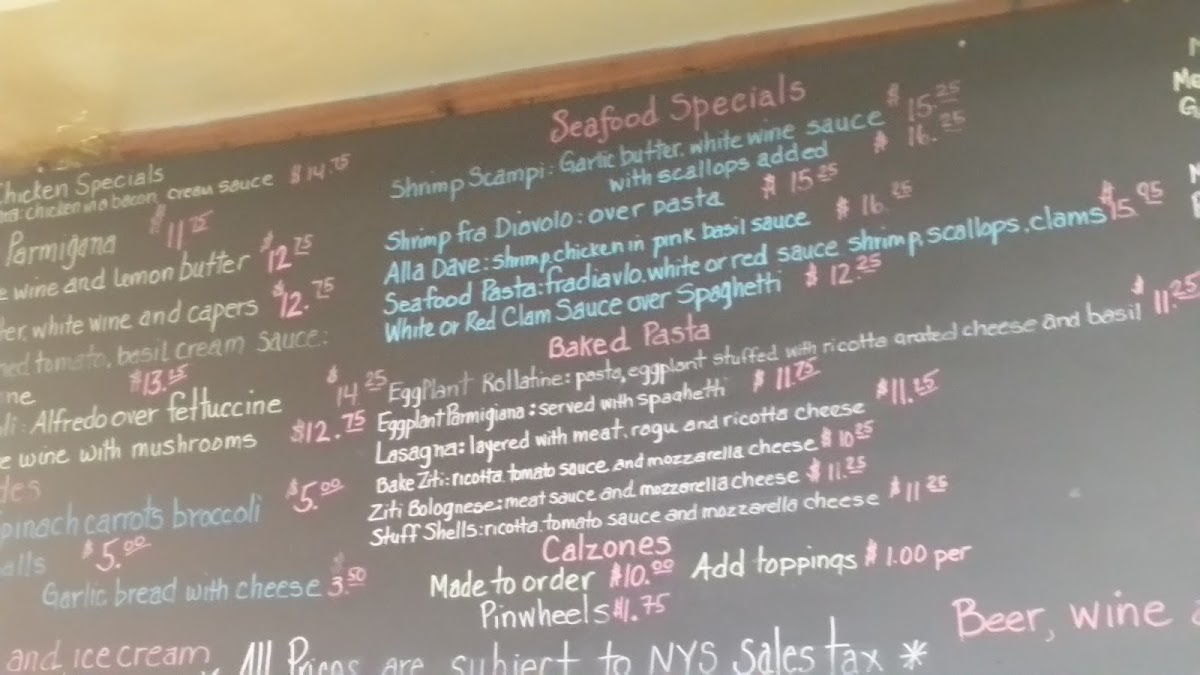 Chicken Specials
chicken in a bacon cream sauce $14.75
Parmigana $11.75
wine and lemon butter $12.75
white wine and capers $12.75
tomato, basil cream sauce:
$13.25
Alfredo over fettuccine $14.25
wine with mushrooms $12.75
spinach carrots broccoli $5.00
$5.00
Garlic bread with cheese 3.50
and ice cream
Seafood Specials
Shrimp Scampi: Garlic butter, white wine sauce $15.25
with scallops added $16.25
Shrimp fra Diovolo: over pasta $15.25
Alla Dave: shrimp, chicken in pink basil sauce $16.25
Seafood Pasta: fradiavlo, white or red sauce shrimp, scallops, clams $15.95
White or Red Clam Sauce over Spaghetti $12.25
Baked Pasta
EggPlant Rollatine: pasta, eggplant stuffed with ricotta grated cheese and basil $11.25
Eggplant Parmigiana: served with spaghetti $11.75
Lasagna: layered with meat, ragu and ricotta cheese $11.25
Bake Ziti: ricotta tomato sauce and mozzarella cheese $10.25
Ziti Bolognese: meat sauce and mozzarella cheese $11.25
Stuff Shells: ricotta, tomato sauce and mozzarella cheese $11.25
Calzones
Made to order $10.00 Add toppings $1.00 per
Pinwheels $1.75
Beer, wine
All Prices are subject to NYS Sales tax *